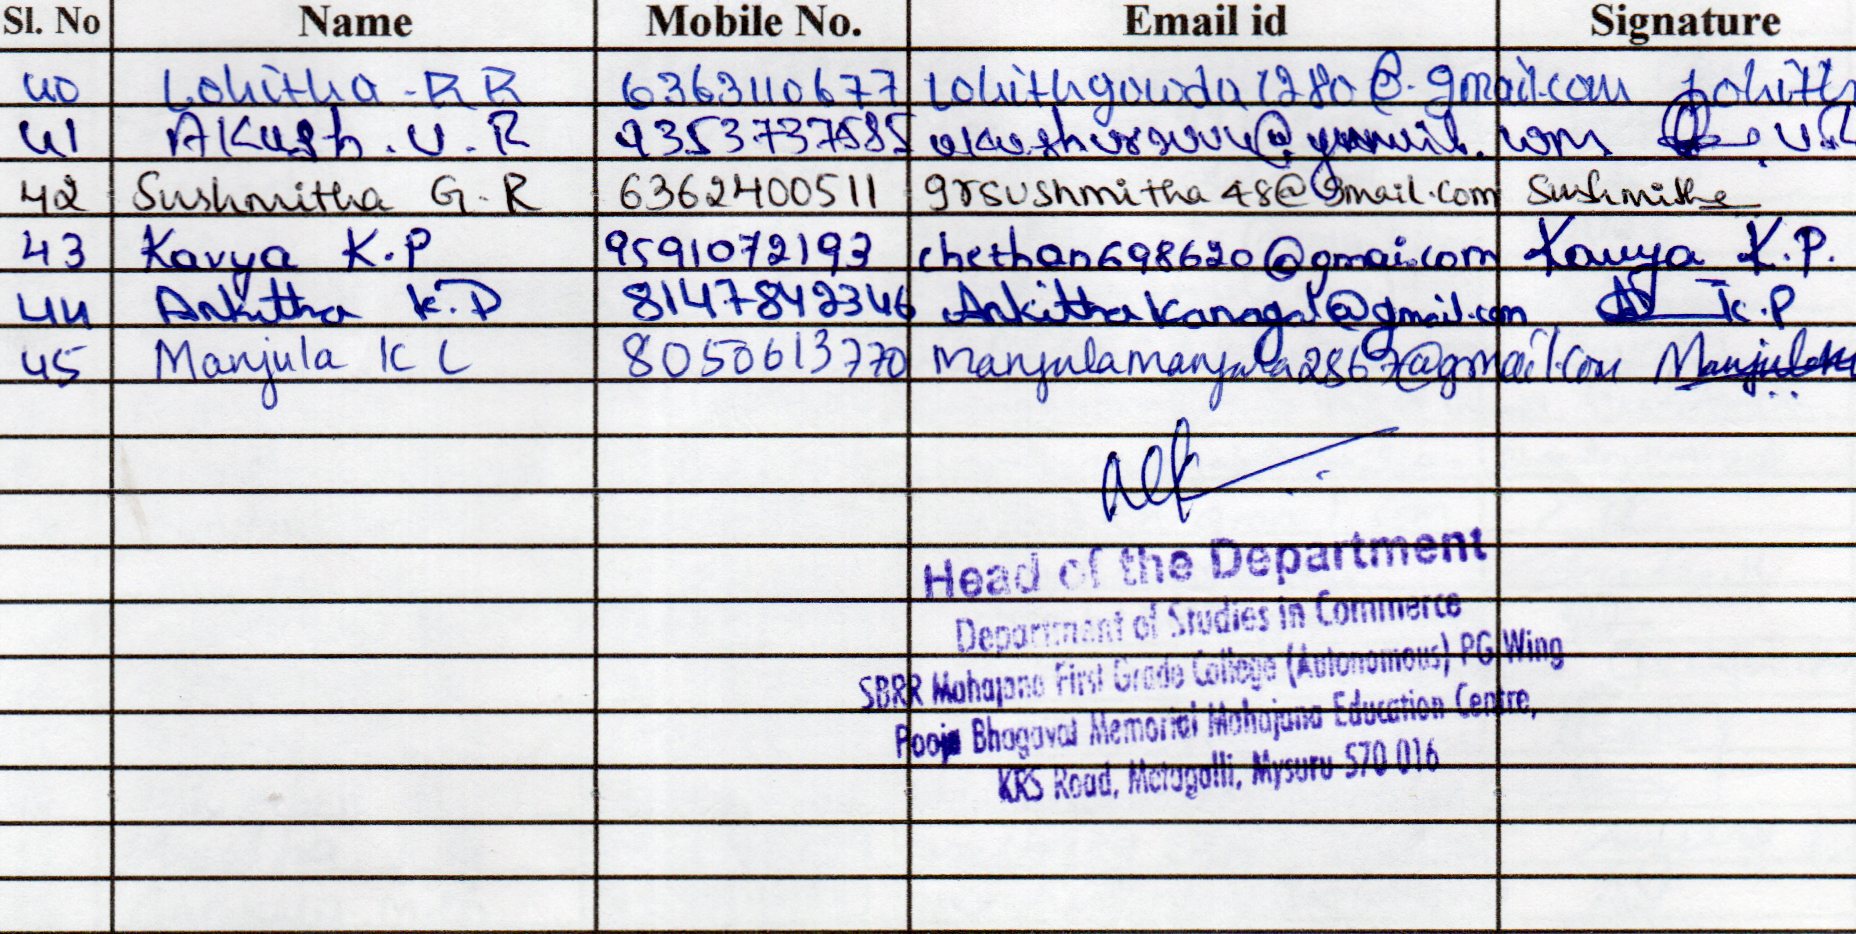 Sl. No Name Mobile No. Email id Signature
40 Lohitha - R R 6363110677 Lohithgowda1280@.gmail.com Lohith
41 Akash . U . R 9353737585
42 Sushmitha G.R 6362400511 grsushmitha48@gmail.com Sushmitha
43 Kavya K.P 9591072193 chethan698620@gmai.com Kavya K.P.
44 Ankitha K.P 8147842346 Ankithakanagal@gmail.com K.P
45 Manjula K C 8050613770 manjulamanjula2867@gmail.com Manjula
Head of the Department
Department of Studies in Commerce
SBRR Mahajana First Grade College (Autonomous) PG Wing
Pooja Bhagavat Memorial Mahajana Education Centre,
KRS Road, Metagalli, Mysuru 570 016